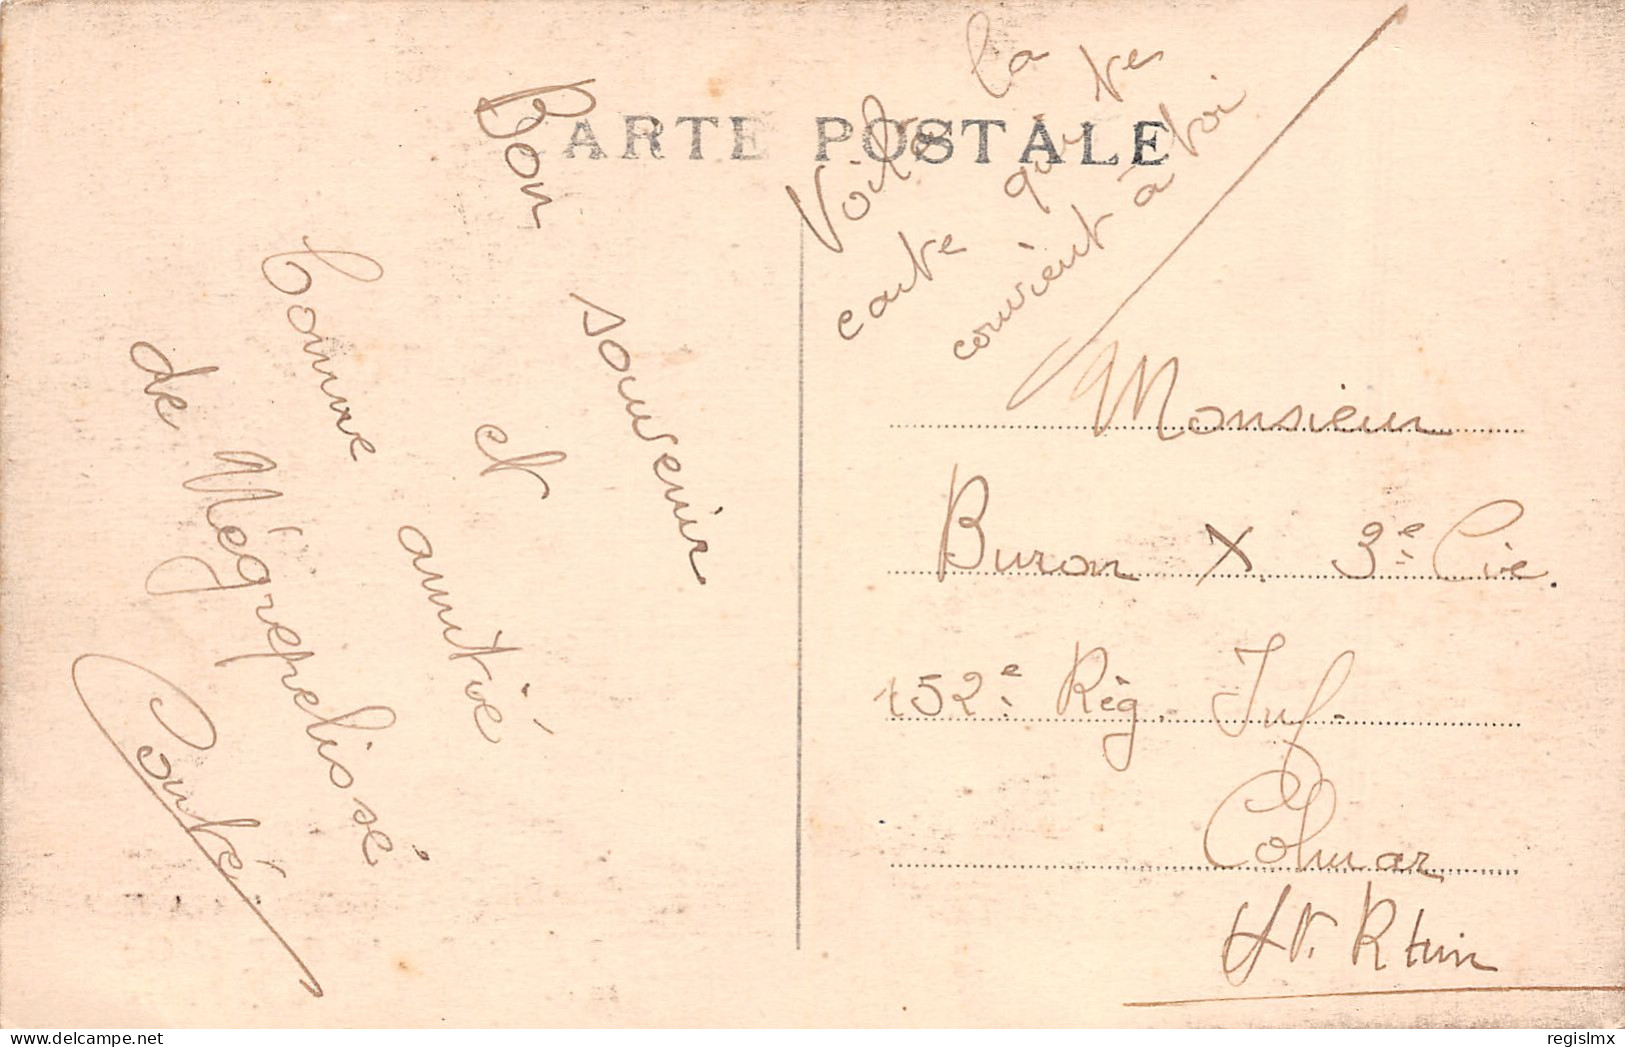 CARTE POSTALE
Bon souvenir
et amitié
Comme
de Négrepelissé
Conté
Voila la
carte qui te
convient à toi
Monsieur
Buron X 3e Cie.
152e Règ. Inf.
Colmar
Ht. Rhin
regislmx